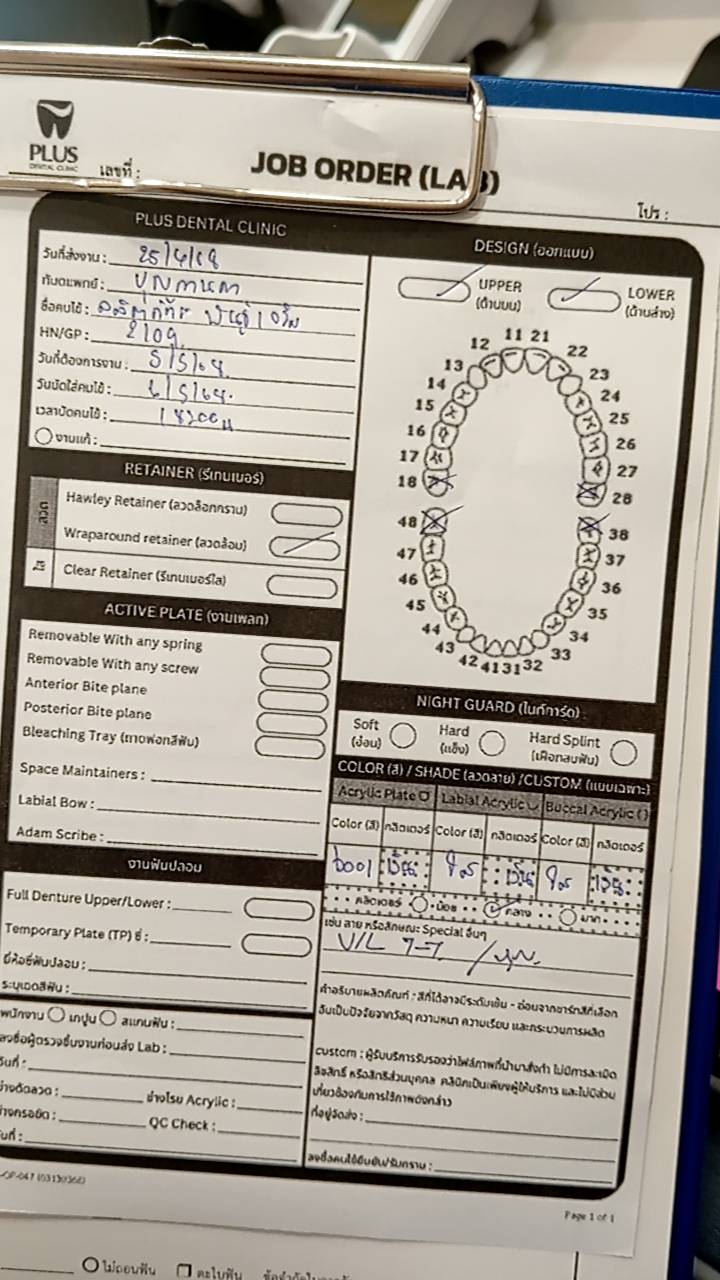 PLUS
DENTAL CLINIC
เลขที่ :
JOB ORDER (LAB)
โปร :
PLUS DENTAL CLINIC
วันที่ส่งงาน : 25/4/68
ทันตแพทย์ :
ชื่อคนไข้ :
HN/GP : 2109
วันที่ต้องการงาน : 5/5/68
วันนัดใส่คนไข้ : 6/5/68.
เวลานัดคนไข้ :
งานแก้ :
RETAINER (รีเทนเนอร์)
ลวด
Hawley Retainer (ลวดล็อกกราม)
Wraparound retainer (ลวดอ้อม)
ใส
Clear Retainer (รีเทนเนอร์ใส)
ACTIVE PLATE (งานเพลท)
Removable With any spring
Removable With any screw
Anterior Bite plane
Posterior Bite plane
Bleaching Tray (ถาดฟอกสีฟัน)
Space Maintainers :
Labial Bow :
Adam Scribe :
งานฟันปลอม
Full Denture Upper/Lower :
Temporary Plate (TP) ซี่ :
ยี่ห้อซี่ฟันปลอม :
ระบุเฉดสีฟัน :
พนักงาน เทปูน สแกนฟัน :
ลงชื่อผู้ตรวจชิ้นงานก่อนส่ง Lab :
วันที่ :
ช่างดัดลวด : ช่างโรย Acrylic :
ช่างกรอขัด : QC Check :
วันที่ :
DESIGN (ออกแบบ)
UPPER
(ด้านบน)
LOWER
(ด้านล่าง)
11 21
12 22
13 23
14 24
15 25
16 26
17 27
18 28
48 38
47 37
46 36
45 35
44 34
43 33
42 41 31 32
NIGHT GUARD (ไนท์การ์ด)
Soft
(อ่อน)
Hard
(แข็ง)
Hard Splint
(เฝือกสบฟัน)
COLOR (สี) / SHADE (ลวดลาย) /CUSTOM (แบบเฉพาะ)
Acrylic Plate Labial Acrylic Buccal Acrylic
Color (สี) กลิตเตอร์ Color (สี) กลิตเตอร์ Color (สี) กลิตเตอร์
ใส ใส
กลิตเตอร์ น้อย กลาง มาก
เช่น ลาย หรือลักษณะ Special อื่นๆ
U/L 7-7
คำอธิบายผลิตภัณฑ์ : สีที่ได้อาจมีระดับเข้ม - อ่อนจากชาร์ทสีที่เลือก
อันเป็นปัจจัยจากวัสดุ ความหนา ความเรียบ และกระบวนการผลิต
custom : ผู้รับบริการรับรองว่าไฟล์ภาพที่นำมาสั่งทำ ไม่มีการละเมิด
ลิขสิทธิ์ หรือสิทธิส่วนบุคคล คลินิกเป็นเพียงผู้ให้บริการ และไม่มีส่วน
เกี่ยวข้องกับการใช้ภาพดังกล่าว
ที่อยู่จัดส่ง :
ลงชื่อคนไข้ยืนยัน/รับทราบ :
Page 1 of 1
ไม่ถอนฟัน ตะไบฟัน